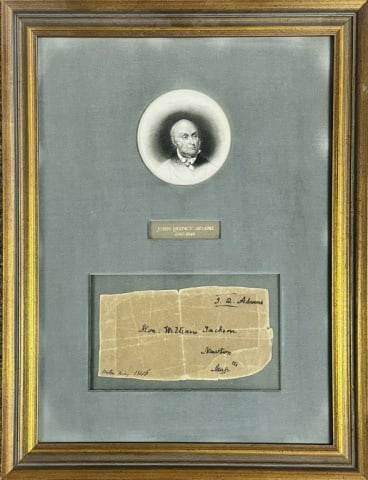 JOHN QUINCY ADAMS
J. Q. Adams
Hon. William Jackson
Newton
Mass